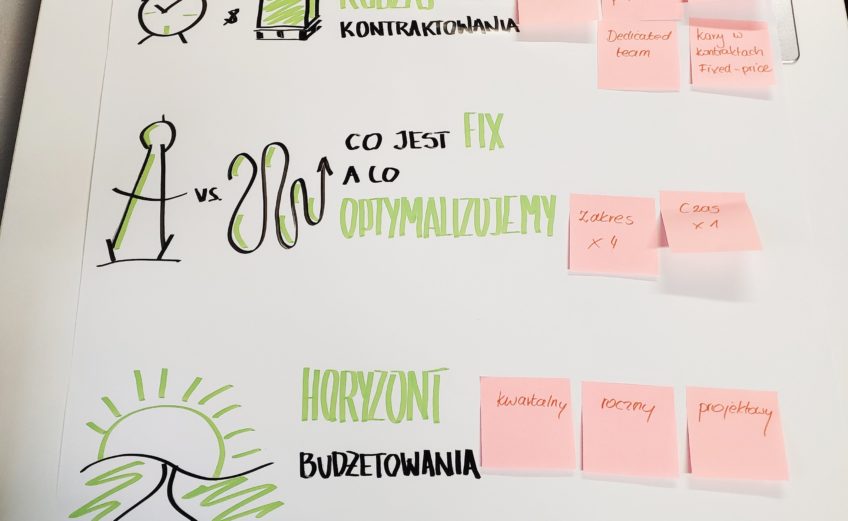 $
RODZAJ
KONTRAKTOWANIA
Dedicated
team
kary w
kontraktach
Fixed-price
vs.
CO JEST FIX
A CO
OPTYMALIZUJEMY
Zakres
x 4
Czas
x 1
HORYZONT
BUDŻETOWANIA
kwartalny
roczny
projektowy